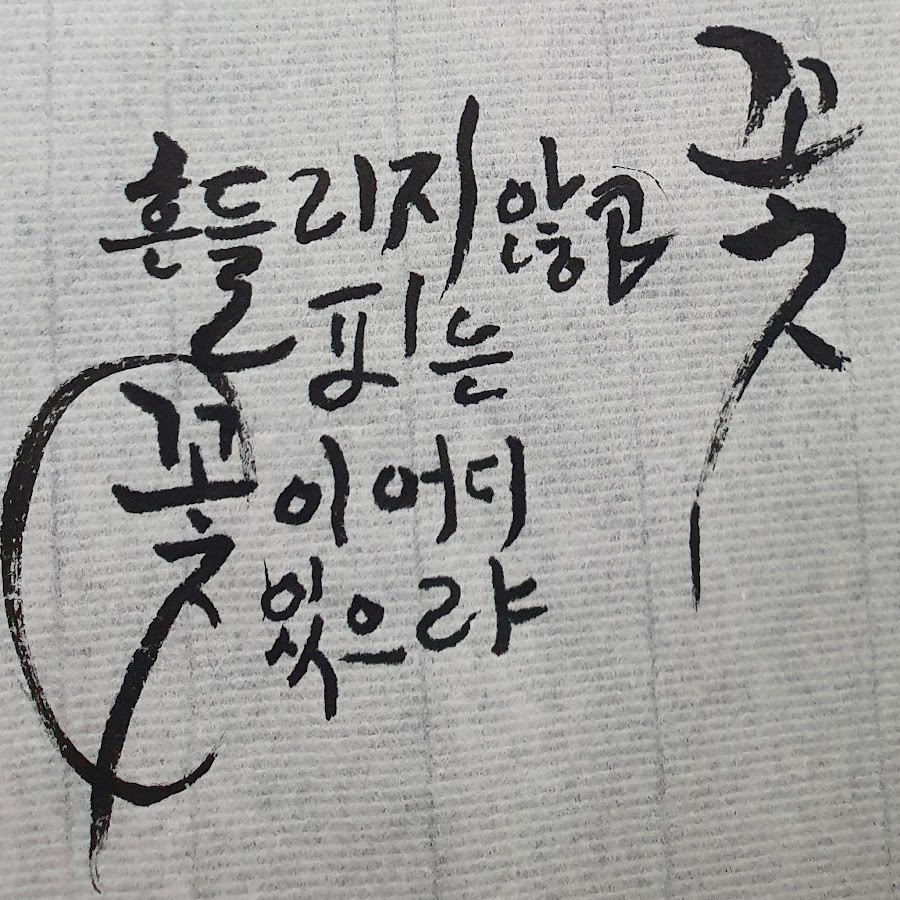 꽃
흔들리지 않고
피는
꽃이 어디
있으랴